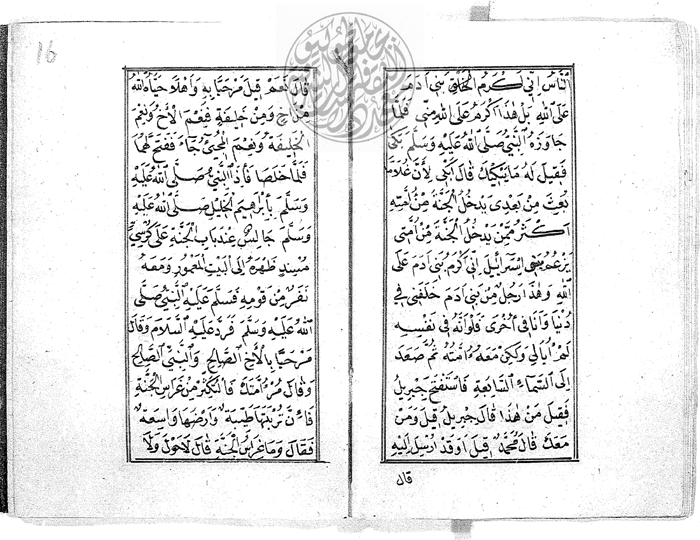 النَّاسِ اِنِّي لَكَرَمُ الْخَلْقِ بَنِي اٰدَمَ
عَلَى اللهِ بَلْ هٰذَا اَكْرَمُ عَلَى اللهِ مِنِّي فَلَمَّا
جَاوَزَهُ النَّبِيُّ صَلَّى اللهُ عَلَيْهِ وَسَلَّمَ بَكَىٰ
فَقِيلَ لَهُ مَا يُبْكِيكَ قَالَ اَبْكِي لِأَنَّ غُلَامًا
بُعِثَ مِنْ بَعْدِي يَدْخُلُ الْجَنَّةَ مِنْ اُمَّتِهِ
اَكْثَرُ مِمَّنْ يَدْخُلُ الْجَنَّةَ مِنْ اُمَّتِي
يَزْعُمُ بَنِي اِسْرَائِيلَ اَنِّي اَكْرَمُ بَنِي اٰدَمَ عَلَى
اللهِ وَهٰذَا رَجُلٌ مِنْ بَنِي اٰدَمَ خَلَفَنِي فِي
دُنْيَا وَاَنَا فِي اُخْرَى فَلَوْ اَنَّهُ فِي نَفْسِهِ
لَمْ اُبَالِي وَلٰكِنْ مَعَهُ اُمَّتُهُ ثُمَّ صَعَدَ
اِلَى السَّمَاءِ السَّابِعَةِ فَاسْتَفْتَحَ جِبْرِيلُ
فَقِيلَ مَنْ هٰذَا قَالَ جِبْرِيلُ قِيلَ وَمَنْ
مَعَكَ قَالَ مُحَمَّدٌ قِيلَ اَوَقَدْ اُرْسِلَ اِلَيْهِ
قال
16
قَالَ نَعَمْ قِيلَ مَرْحَبًا بِهِ وَاَهْلًا حَيَّاهُ اللهُ
مِنْ اَخٍ وَمِنْ خَلِيفَةٍ فَنِعْمَ الْأَخُ وَنِعْمَ
الْخَلِيفَةُ وَنِعْمَ الْمَجِيُّ جَاءَ فَفُتِحَ لَهُمَا
فَلَمَّا خَلَصَا فَاِذَا النَّبِيُّ صَلَّى اللهُ عَلَيْهِ
وَسَلَّمَ بِاِبْرٰهِيمَ الْخَلِيلِ صَلَّى اللهُ عَلَيْهِ
وَسَلَّمَ جَالِسٌ عِنْدَ بَابِ الْجَنَّةِ عَلَى كُرْسِيٍّ
مُسْنِدٌ ظَهْرَهُ اِلَى الْبَيْتِ الْمَعْمُورِ وَمَعَهُ
نَفَرٌ مِنْ قَوْمِهِ فَسَلَّمَ عَلَيْهِ النَّبِيُّ صَلَّى
اللهُ عَلَيْهِ وَسَلَّمَ فَرَدَّ عَلَيْهِ السَّلَامَ وَقَالَ
مَرْحَبًا بِالْأَخِ الصَّالِحِ وَالنَّبِيِّ الصَّالِحِ
وَقَالَ مُرْ اُمَّتَكَ فَالْتُكْثِرْ مِنْ غِرَاسِ الْجَنَّةِ
فَاِنَّ تُرْبَتَهَا طَيِّبَةٌ وَاَرْضَهَا وَاسِعَةٌ
فَقَالَ وَمَا غِرَاسُ الْجَنَّةِ قَالَ لَا حَوْلَ وَلَا